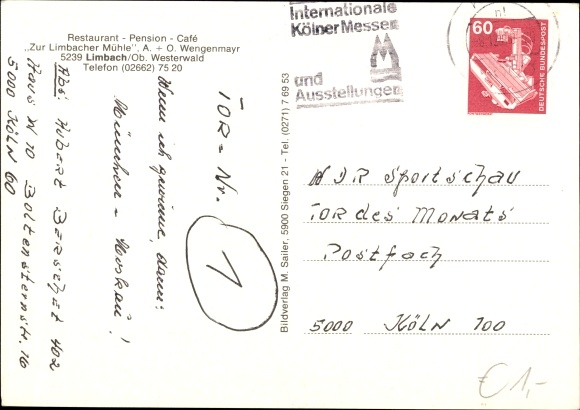 Restaurant - Pension - Café
„Zur Limbacher Mühle", A. + O. Wengenmayr
5239 Limbach/Ob. Westerwald
Telefon (02662) 75 20
Abs: HUBERT BERSCHET 402
Haus N 10 Boltensternstr. 16
5000 KÖLN 60
Wenn ich gewinne, dann:
München - Moskau!
TOR-Nr.
1
Bildverlag M. Sailer, 5900 Siegen 21 - Tel. (0271) 7 69 53
Internationale
Kölner Messen
und
Ausstellungen
60
DEUTSCHE BUNDESPOST
WDR Sportschau
TOR des Monats
Postfach
5000 KÖLN 100
€ 1,-